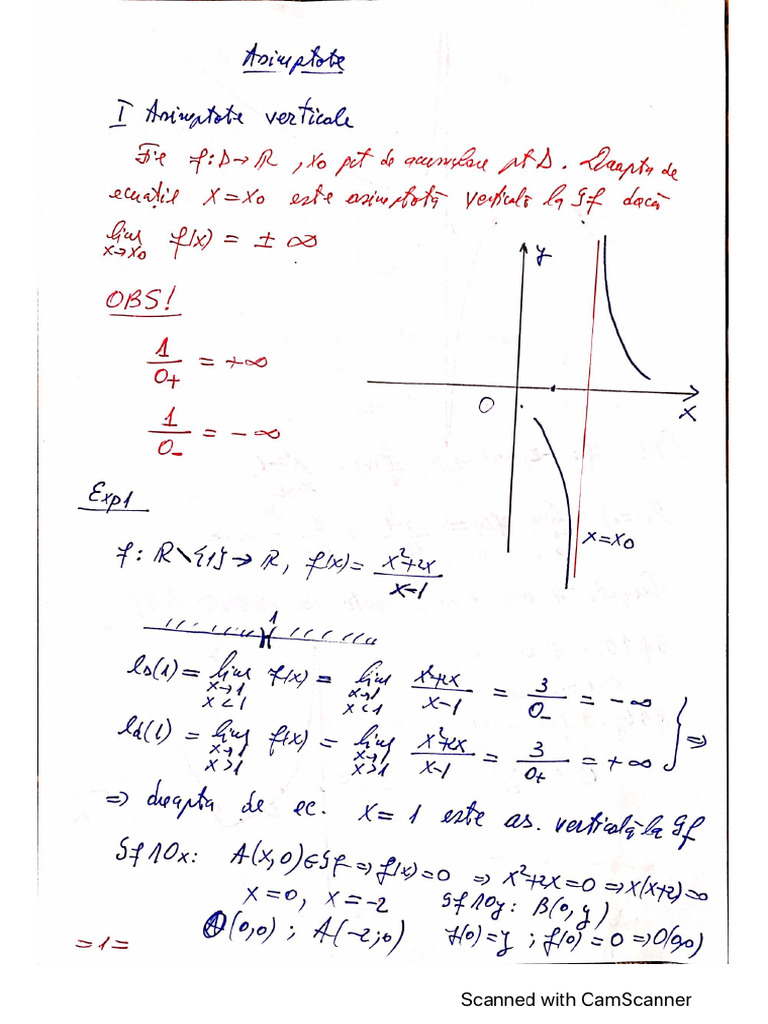 Asimptote
I Asimptote verticale
Fie f: D→ℝ, x0 pct de acumulare pt D. Dreapta de
ecuație x=x0 este asimptotă verticală la Gf dacă
lim x→x0 f(x) = ± ∞
OBS!
1/0+ = +∞
1/0- = -∞
y
O
x
x=x0
Exp1
f: ℝ\{1}→ℝ, f(x)= (x²+2x)/(x-1)
1
ls(1)= lim x→1 x<1 f(x) = lim x→1 x<1 (x²+2x)/(x-1) = 3/0- = -∞
ld(1)= lim x→1 x>1 f(x) = lim x→1 x>1 (x²+2x)/(x-1) = 3/0+ = +∞ } ⇒
⇒ dreapta de ec. x=1 este as. verticală la Gf
Gf∩Ox: A(x,0)∈Gf ⇒ f(x)=0 ⇒ x²+2x=0 ⇒ x(x+2)=0
x=0, x=-2
O(0,0) ; A(-2;0)
Gf∩Oy: B(0,y)
f(0)=y ; f(0)=0 ⇒ O(0,0)
=1=
Scanned with CamScanner